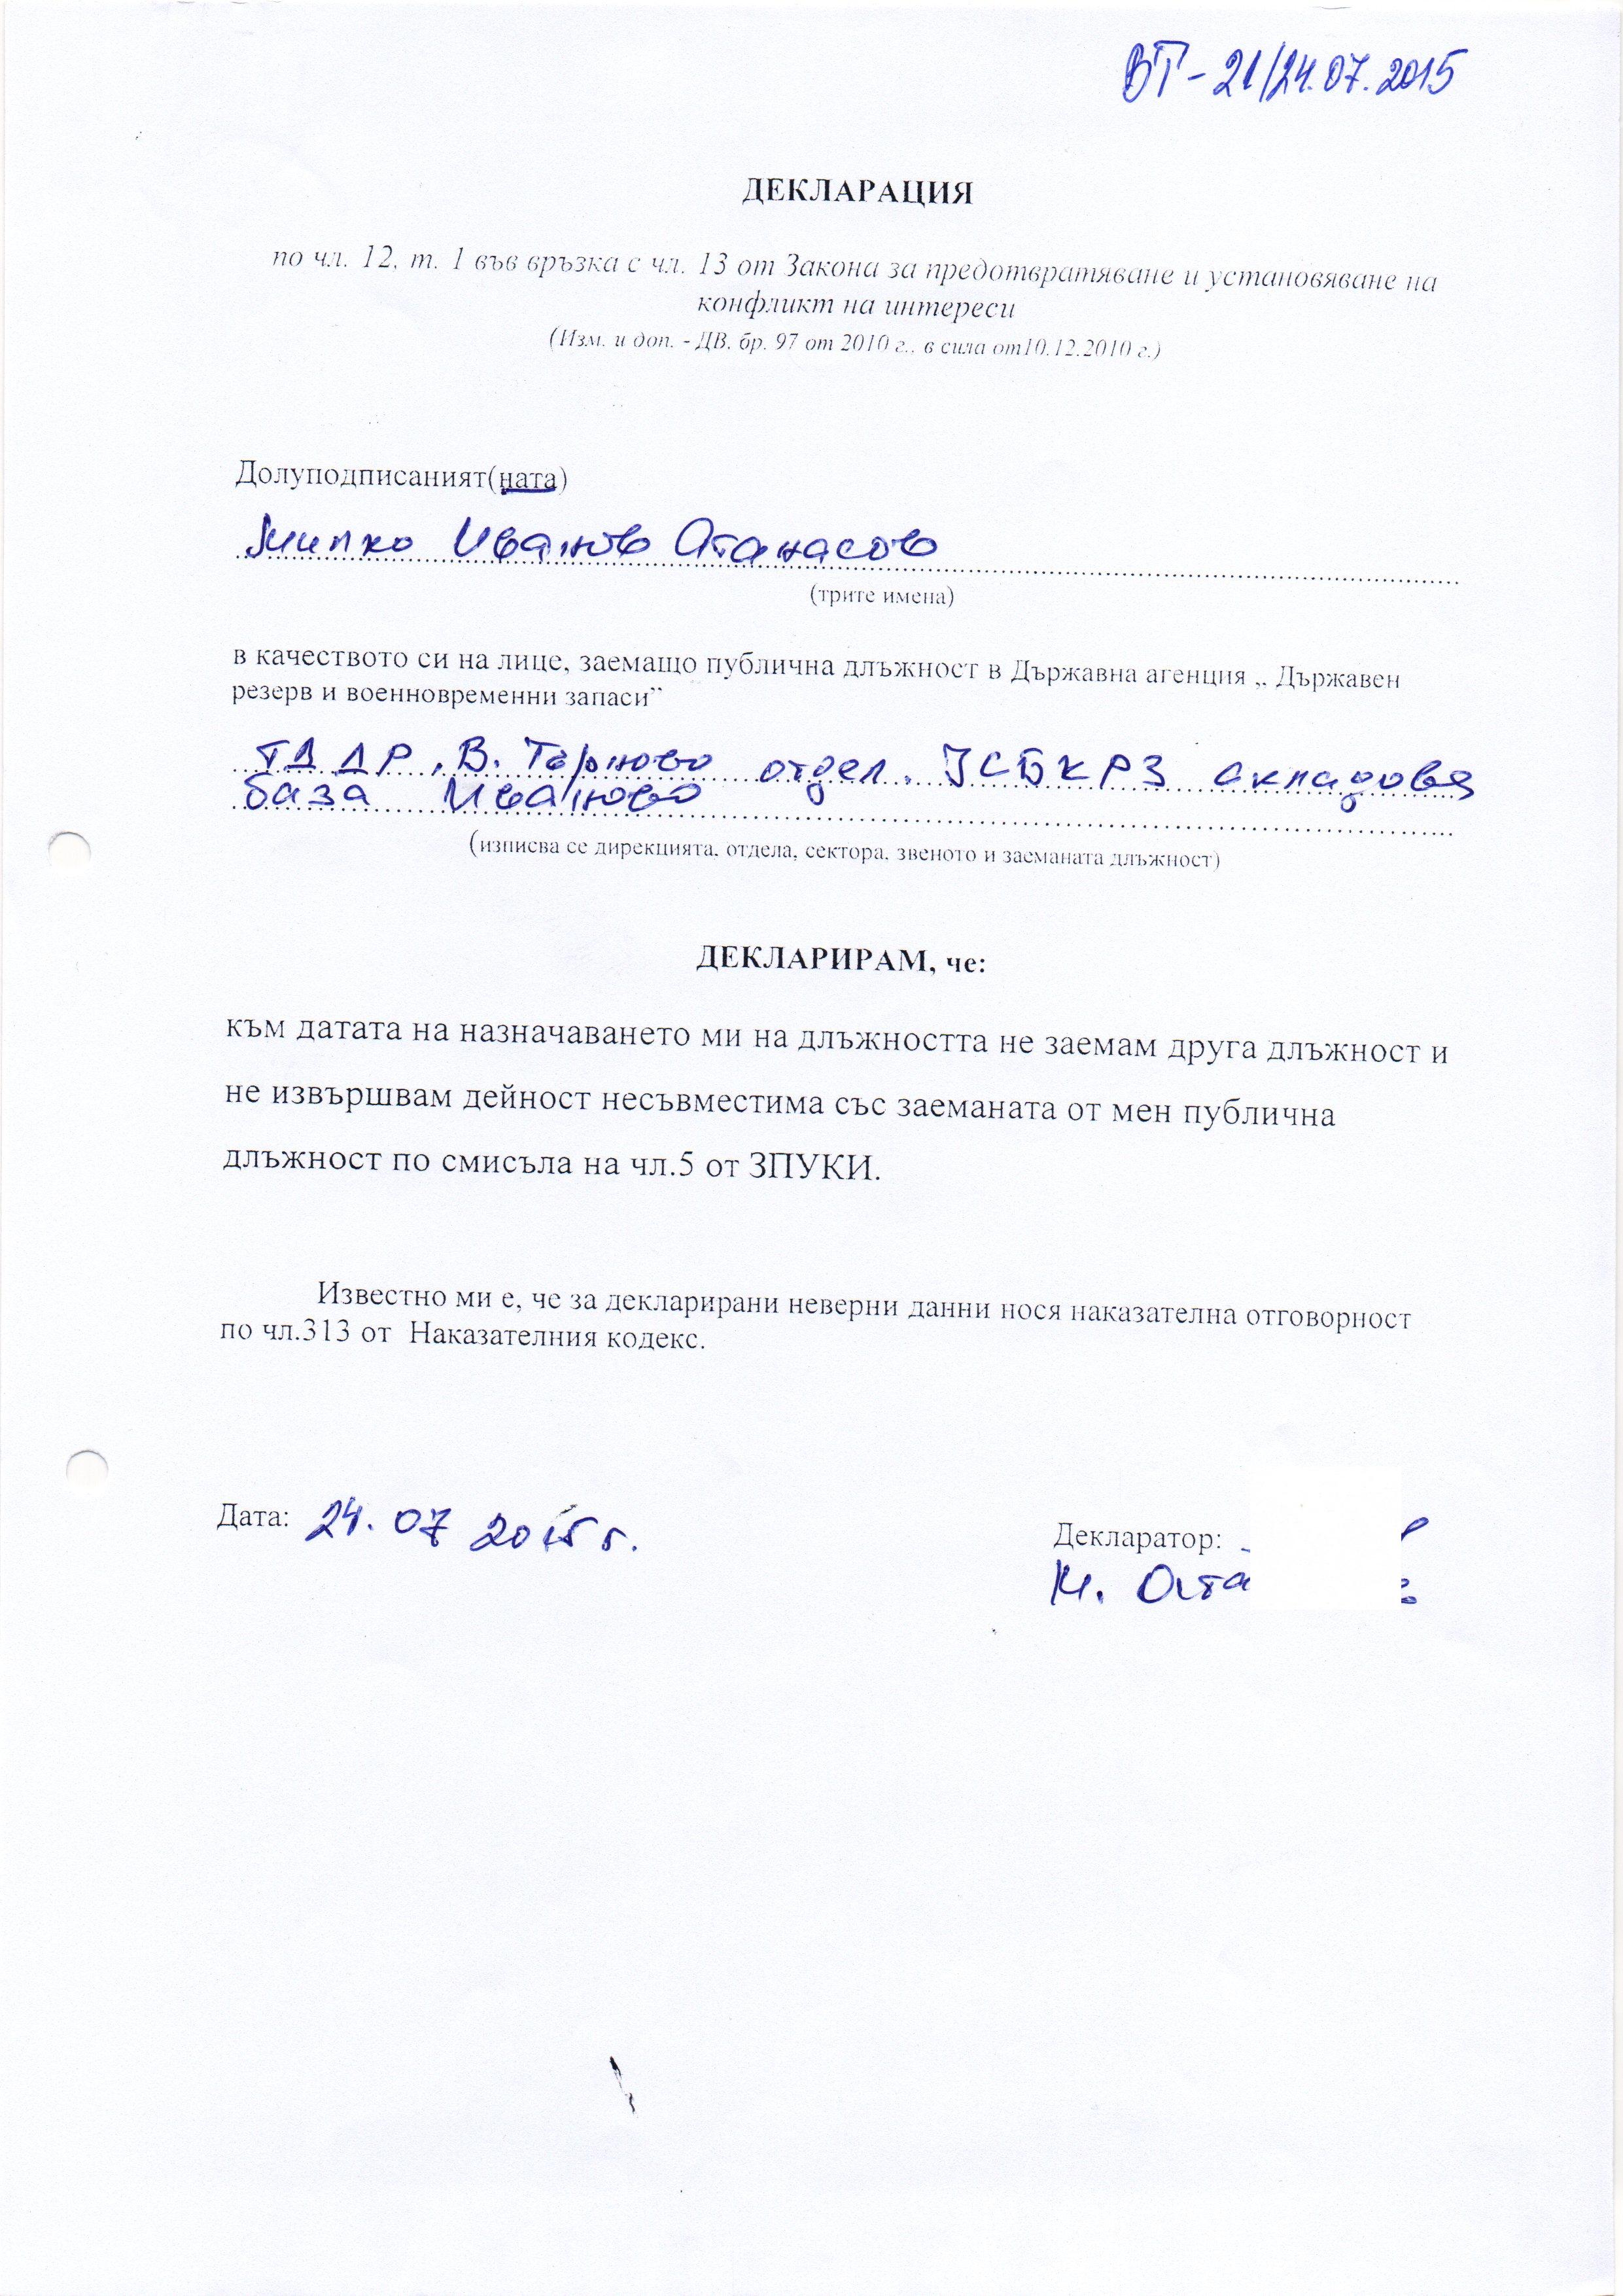 ВТ - 21/24.07.2015
ДЕКЛАРАЦИЯ
по чл. 12, т. 1 във връзка с чл. 13 от Закона за предотвратяване и установяване на
конфликт на интереси
(Изм. и доп. - ДВ, бр. 97 от 2010 г., в сила от10.12.2010 г.)
Долуподписаният(ната)
Милко Иванов Атанасов
(трите имена)
в качеството си на лице, заемащо публична длъжност в Държавна агенция „ Държавен
резерв и военновременни запаси”
ТД ДР, В. Търново отдел. УСБКРЗ складова
база Иваново
(изписва се дирекцията, отдела, сектора, звеното и заеманата длъжност)
ДЕКЛАРИРАМ, че:
към датата на назначаването ми на длъжността не заемам друга длъжност и
не извършвам дейност несъвместима със заеманата от мен публична
длъжност по смисъла на чл.5 от ЗПУКИ.
Известно ми е, че за декларирани неверни данни нося наказателна отговорност
по чл.313 от Наказателния кодекс.
Дата: 24. 07 2015 г.
Декларатор:
М.